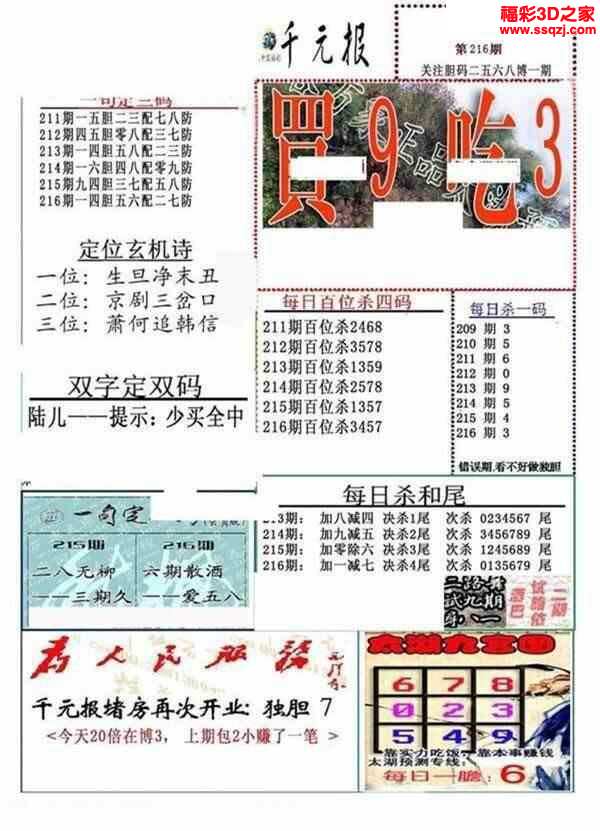 福彩3D之家
www.ssqzj.com
千元报
第216期
关注胆码二五六八博一期
買9吃3
一句定三码
211期一五胆二三配七八防
212期四五胆零八配三七防
213期一四胆五八配二三防
214期一六胆四八配零九防
215期九四胆三七配五八防
216期一四胆五六配二七防
定位玄机诗
一位：生旦净末丑
二位：京剧三岔口
三位：萧何追韩信
双字定双码
陆儿——提示：少买全中
每日百位杀四码
211期百位杀2468
212期百位杀3578
213期百位杀1359
214期百位杀2578
215期百位杀1357
216期百位杀3457
每日杀一码
209 期 3
210 期 5
211 期 6
212 期 0
213 期 9
214 期 5
215 期 4
216 期 3
错误期,看不好做独胆
每日杀和尾
213期： 加八减四 决杀1尾 次杀 0234567 尾
214期： 加九减五 决杀2尾 次杀 3456789 尾
215期： 加零除六 决杀3尾 次杀 1245689 尾
216期： 加一减七 决杀4尾 次杀 0135679 尾
一句定
215期
二八无柳
——三期久
216期
六期散酒
——爱五八
二期
为人民服务
千元报绪房再次开业：独胆 7
<今天20倍在博3， 上期包2小赚了一笔>
太湖九宫图
6 7 8
0 2 3
5 4 9
靠实力吃饭，靠本事赚钱
太湖预测专线：
每日一胆：6